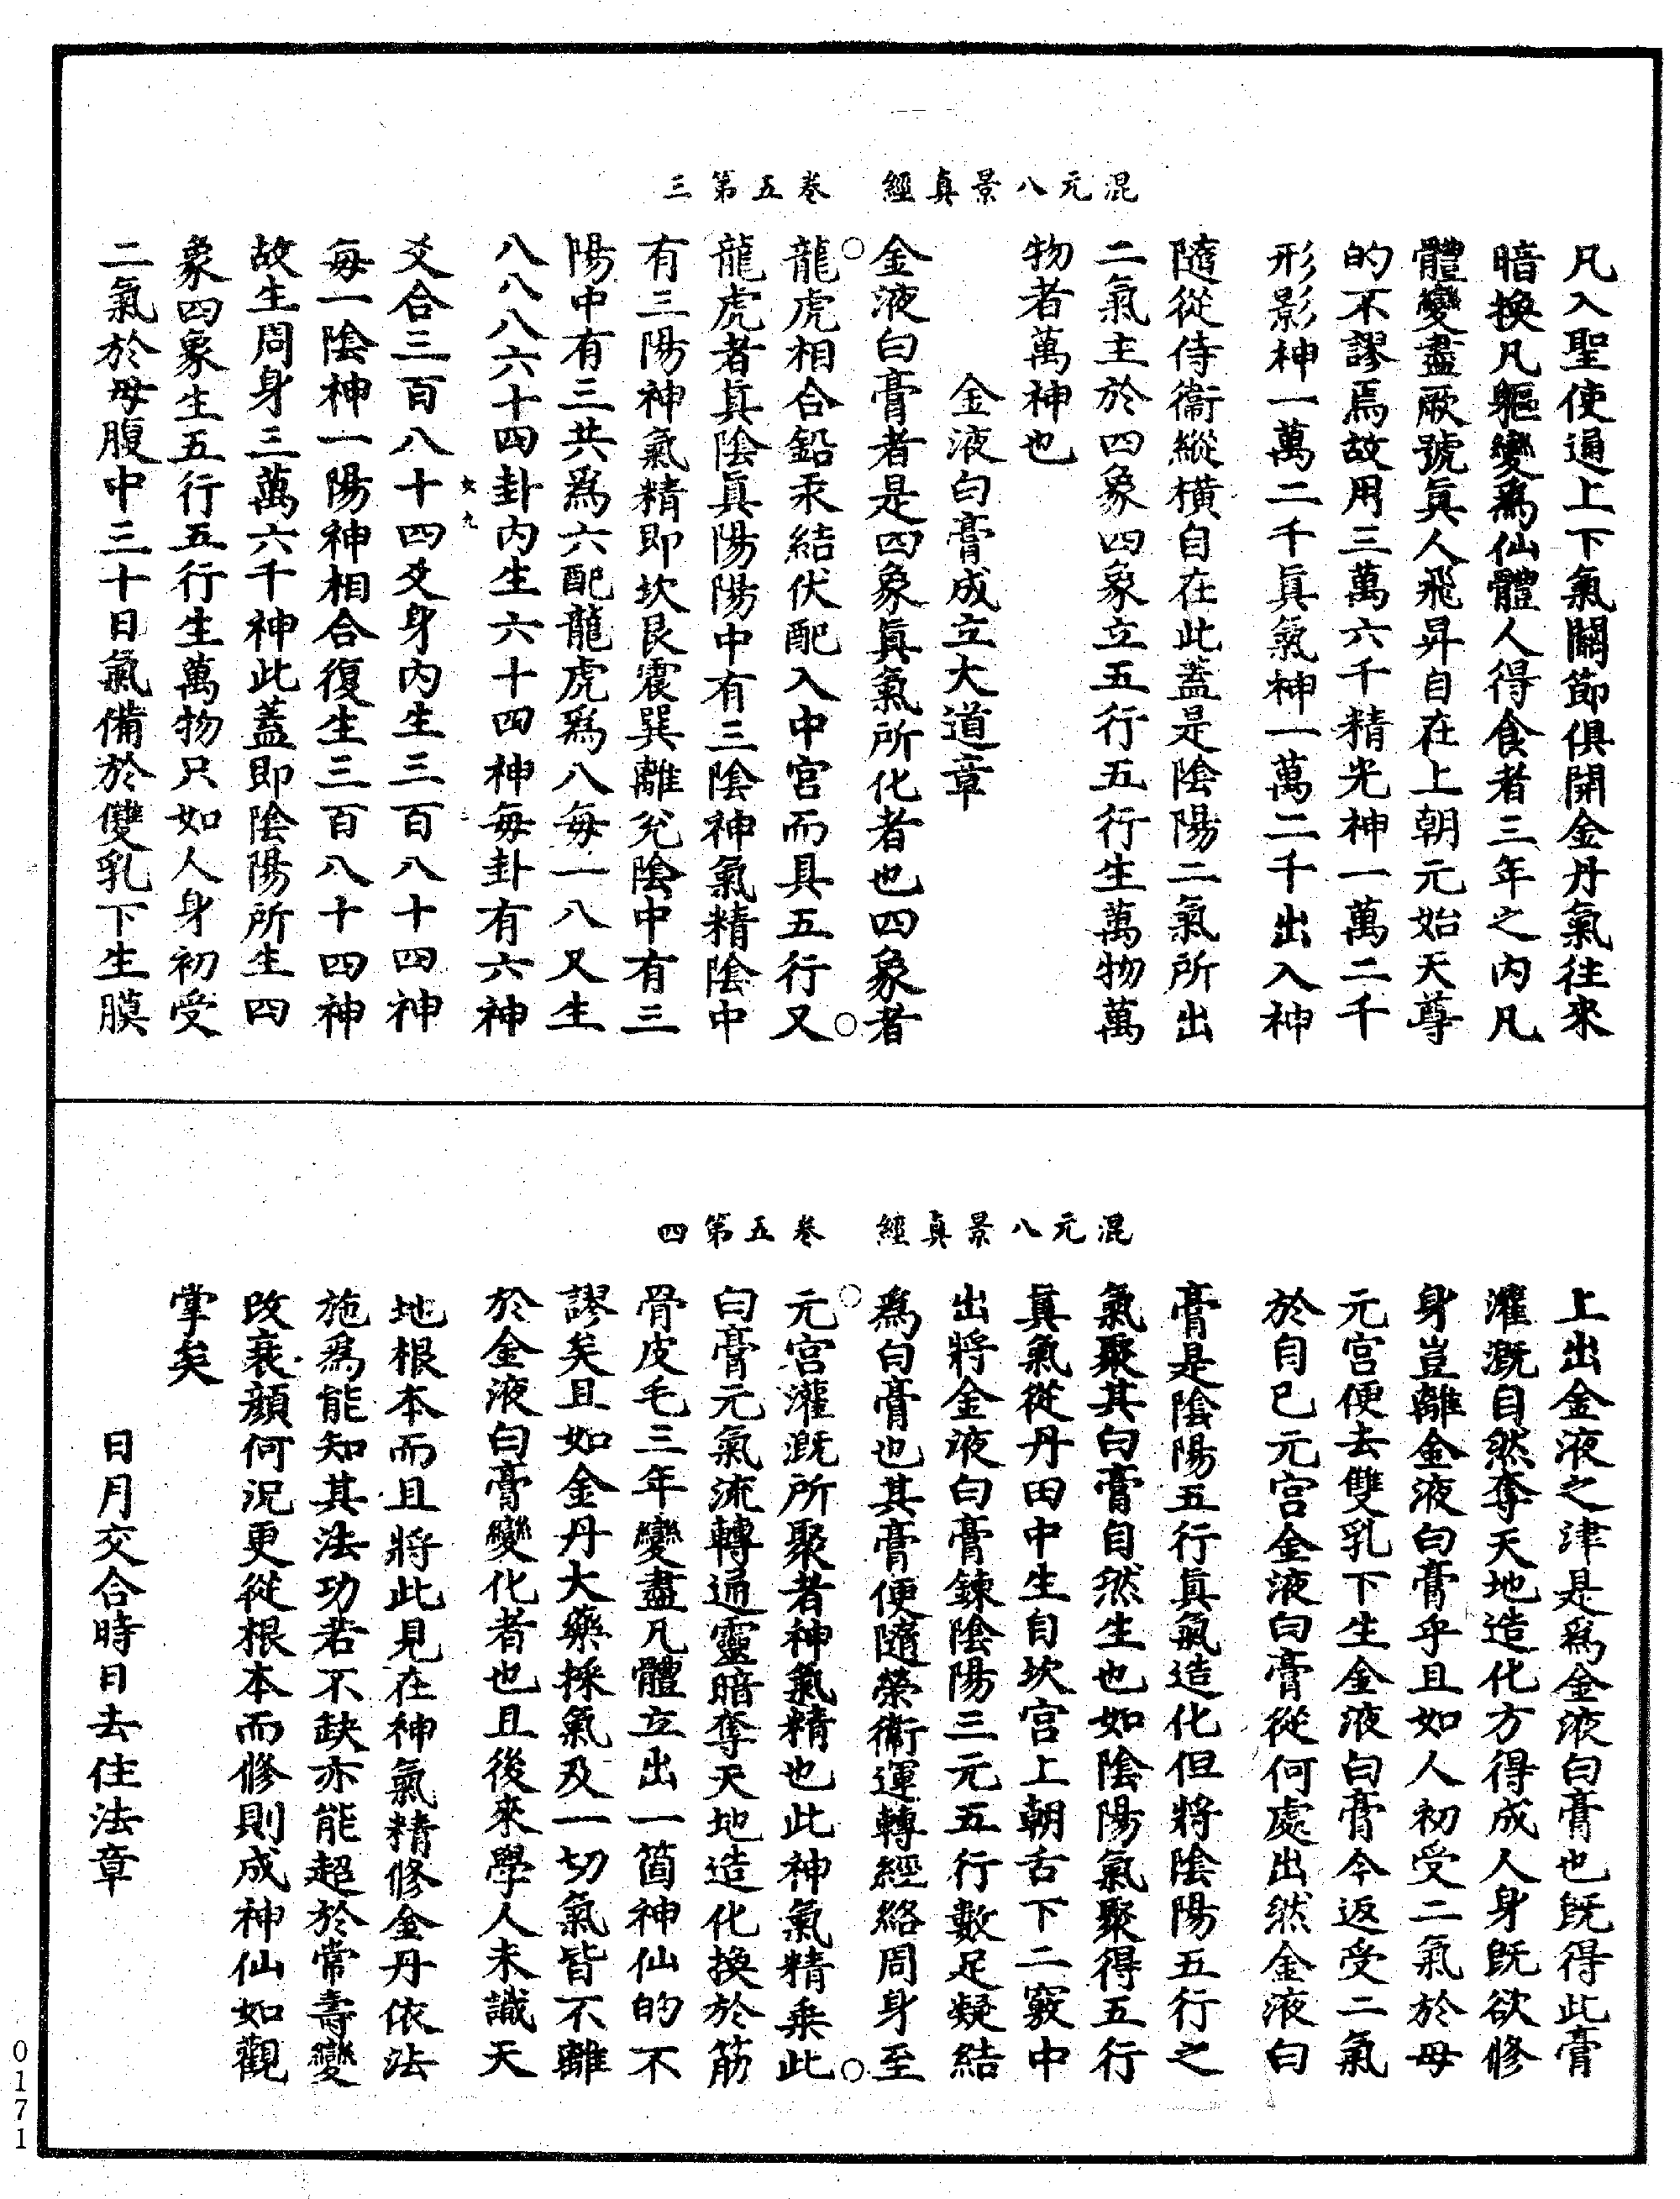 混元八景真經　卷五第三
凡入聖使通上下氣關節俱開金丹氣往來
暗換凡軀變爲仙體人得食者三年之内凡
體變盡厥號眞人飛昇自在上朝元始天尊
的不謬焉故用三萬六千精光神一萬二千
形影神一萬二千眞氣神一萬二千出入神
隨從侍衞縱橫自在此蓋是陰陽二氣所出
二氣主於四象四象立五行五行生萬物萬
物者萬神也
金液白膏成立大道章
金液白膏者是四象眞氣所化者也四象者
龍虎相合鉛汞結伏配入中宮而具五行又
龍虎者眞陰眞陽陽中有三陰神氣精陰中
有三陽神氣精即坎艮震巽離兊陰中有三
陽中有三共爲六配龍虎爲八每一八又生
八八八六十四卦内生六十四神每卦有六神
爻合三百八十四爻身内生三百八十四神
每一陰神一陽神相合復生三百八十四神
故生周身三萬六千神此蓋即陰陽所生四
象四象生五行五行生萬物只如人身初受
二氣於母腹中三十日氣備於雙乳下生膜
混元八景真經　卷五第四
上出金液之津是爲金液白膏也旣得此膏
灌溉自然奪天地造化方得成人身旣欲修
身豈離金液白膏乎且如人初受二氣於母
元宮便去雙乳下生金液白膏今返受二氣
於自已元宮金液白膏從何處出然金液白
膏是陰陽五行眞氣造化但將陰陽五行之
氣聚其白膏自然生也如陰陽氣聚得五行
眞氣從丹田中生自坎宮上朝舌下二竅中
出將金液白膏鍊陰陽三元五行數足凝結
爲白膏也其膏便隨榮衞運轉經絡周身至
元宮灌溉所聚者神氣精也此神氣精乗此
白膏元氣流轉通靈暗奪天地造化換於筋
骨皮毛三年變盡凡體立出一箇神仙的不
謬矣且如金丹大藥採氣及一切氣皆不離
於金液白膏變化者也且後來學人未識天
地根本而且將此見在神氣精修金丹依法
施爲能知其法功若不缺亦能超於常壽變
改衰顏何況更從根本而修則成神仙如觀
掌矣
日月交合時日去住法章
0171